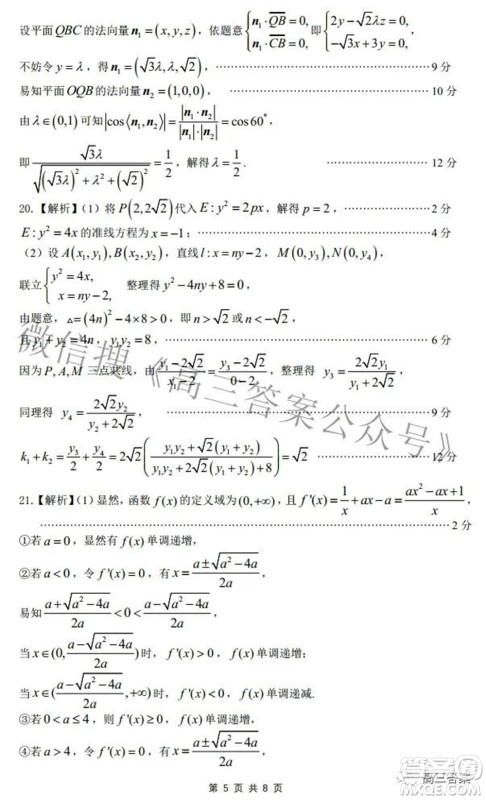 设平面 QBC 的法向量 n₁=(x,y,z)，依题意 {n₁·QB=0, n₁·CB=0, 即 {2y-√2λz=0, -√3x+3y=0,
不妨令 y=λ，得 n₁=(√3λ,λ,√2)，……9 分
易知平面 OQB 的法向量 n₂=(1,0,0)，……10 分
由 λ∈(0,1) 可知 |cos⟨n₁,n₂⟩|=|n₁·n₂|/(|n₁|·|n₂|)=cos60°，
即 √3λ/√((√3λ)²+λ²+(√2)²)=1/2，解得 λ=1/2.……12 分
20.【解析】（1）将 P(2,2√2) 代入 E:y²=2px，解得 p=2，……2 分
E:y²=4x 的准线方程为 x=-1；……4 分
（2）设 A(x₁,y₁),B(x₂,y₂)，直线 l:x=ny-2，M(0,y₃),N(0,y₄)，
联立 {y²=4x, x=ny-2, 整理得 y²-4ny+8=0，
由题意，△=(4n)²-4×8>0，即 n>√2 或 n<-√2，
且 y₁+y₂=4n，y₁y₂=8，……6 分
因为 P,A,M 三点共线，由 (y₁-2√2)/(x₁-2)=(y₃-2√2)/(0-2)，整理得 y₃=2√2y₁/(y₁+2√2)
同理得 y₄=2√2y₂/(y₂+2√2)，……9 分
k₁+k₂=y₃/2+y₄/2=2√2((y₁y₂+√2(y₁+y₂))/(y₁y₂+2√2(y₁+y₂)+8))=√2……12 分
21.【解析】（1）显然，函数 f(x) 的定义域为(0,+∞)，且 f'(x)=1/x+ax-a=(ax²-ax+1)/x
……2 分
①若 a=0，显然有 f(x) 单调递增，
②若 a<0，令 f'(x)=0，有 x=(a±√(a²-4a))/2a，
易知 (a+√(a²-4a))/2a<0<(a-√(a²-4a))/2a，
当 x∈(0,(a-√(a²-4a))/2a) 时，f'(x)>0，f(x) 单调递增；
当 x∈((a-√(a²-4a))/2a,+∞) 时，f'(x)<0，f(x) 单调递减.
③若 0<a≤4，则 f'(x)≥0，f(x) 单调递增，
④若 a>4，令 f'(x)=0，有 x=(a±√(a²-4a))/2a，
第 5 页 共 8 页
微信搜《高三答案公众号》
高三答案